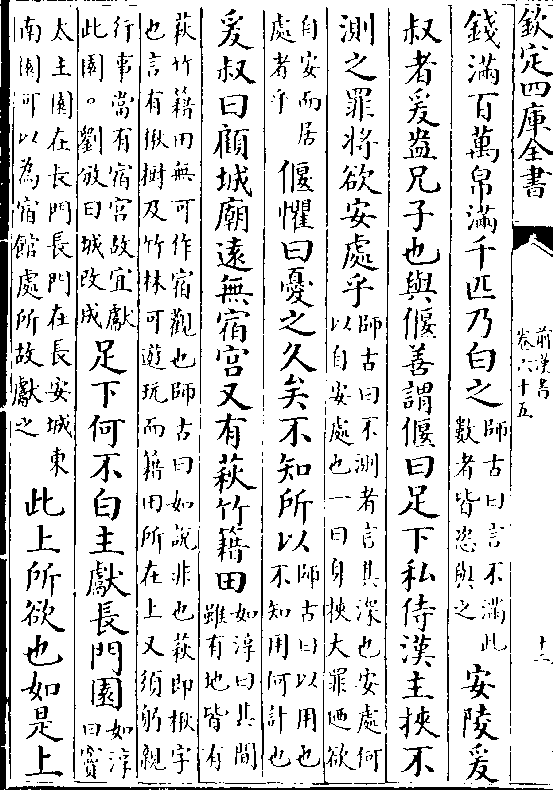 欽定四庫全書
前漢書
卷六十五
十二
錢滿百萬帛滿千匹乃白之師古曰言不滿此數者皆恣與之安陵爰
叔者爰盎兄子也與偃善謂偃曰足下私侍漢主挾不
測之罪將欲安處乎師古曰不測者言其深也安處何以自安處也一曰身挾大罪迺欲
自安而居處者乎偃懼曰憂之久矣不知所以師古曰以用也不知用何計也
爰叔曰顧城廟遠無宿宮又有萩竹籍田如淳曰其間雖有地皆有
萩竹籍田無可作宿觀也師古曰如說非也萩即楸字也言有楸樹及竹林可遊玩而籍田所在上又須躬親
行事當有宿宮故宜獻此園。劉攽曰城改成足下何不白主獻長門園如淳曰竇
太主園在長門長門在長安城東南園可以為宿館處所故獻之此上所欲也如是上